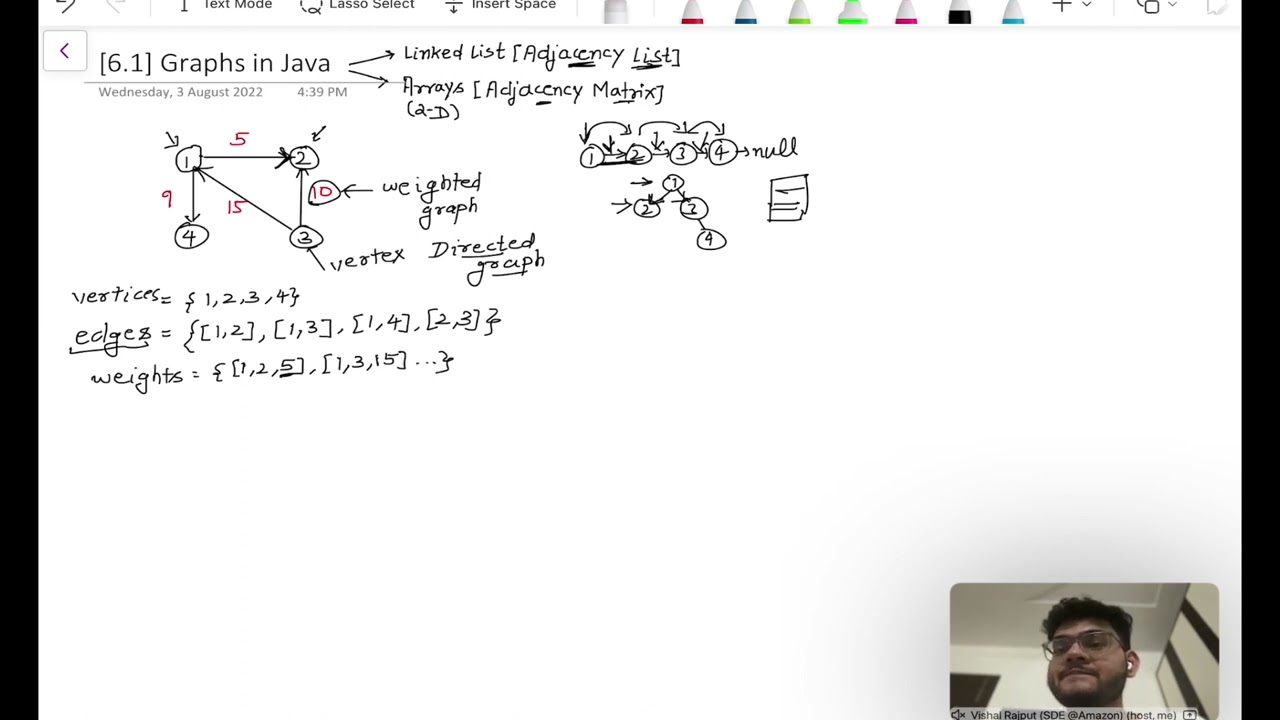 Text Mode Lasso Select Insert Space
[6.1] Graphs in Java
Wednesday, 3 August 2022 4:39 PM
Linked List [Adjacency List]
Arrays [Adjacency Matrix]
(2-D)
1 5 2
9 15 10
4 3
weighted
graph
vertex
Directed
graph
1 2 3 4 null
1
2 3
4
vertices = {1,2,3,4}
edges = {[1,2], [1,3], [1,4], [2,3]}
weights = {[1,2,5], [1,3,15] ...}
Vishal Rajput (SDE @Amazon) (host, me)